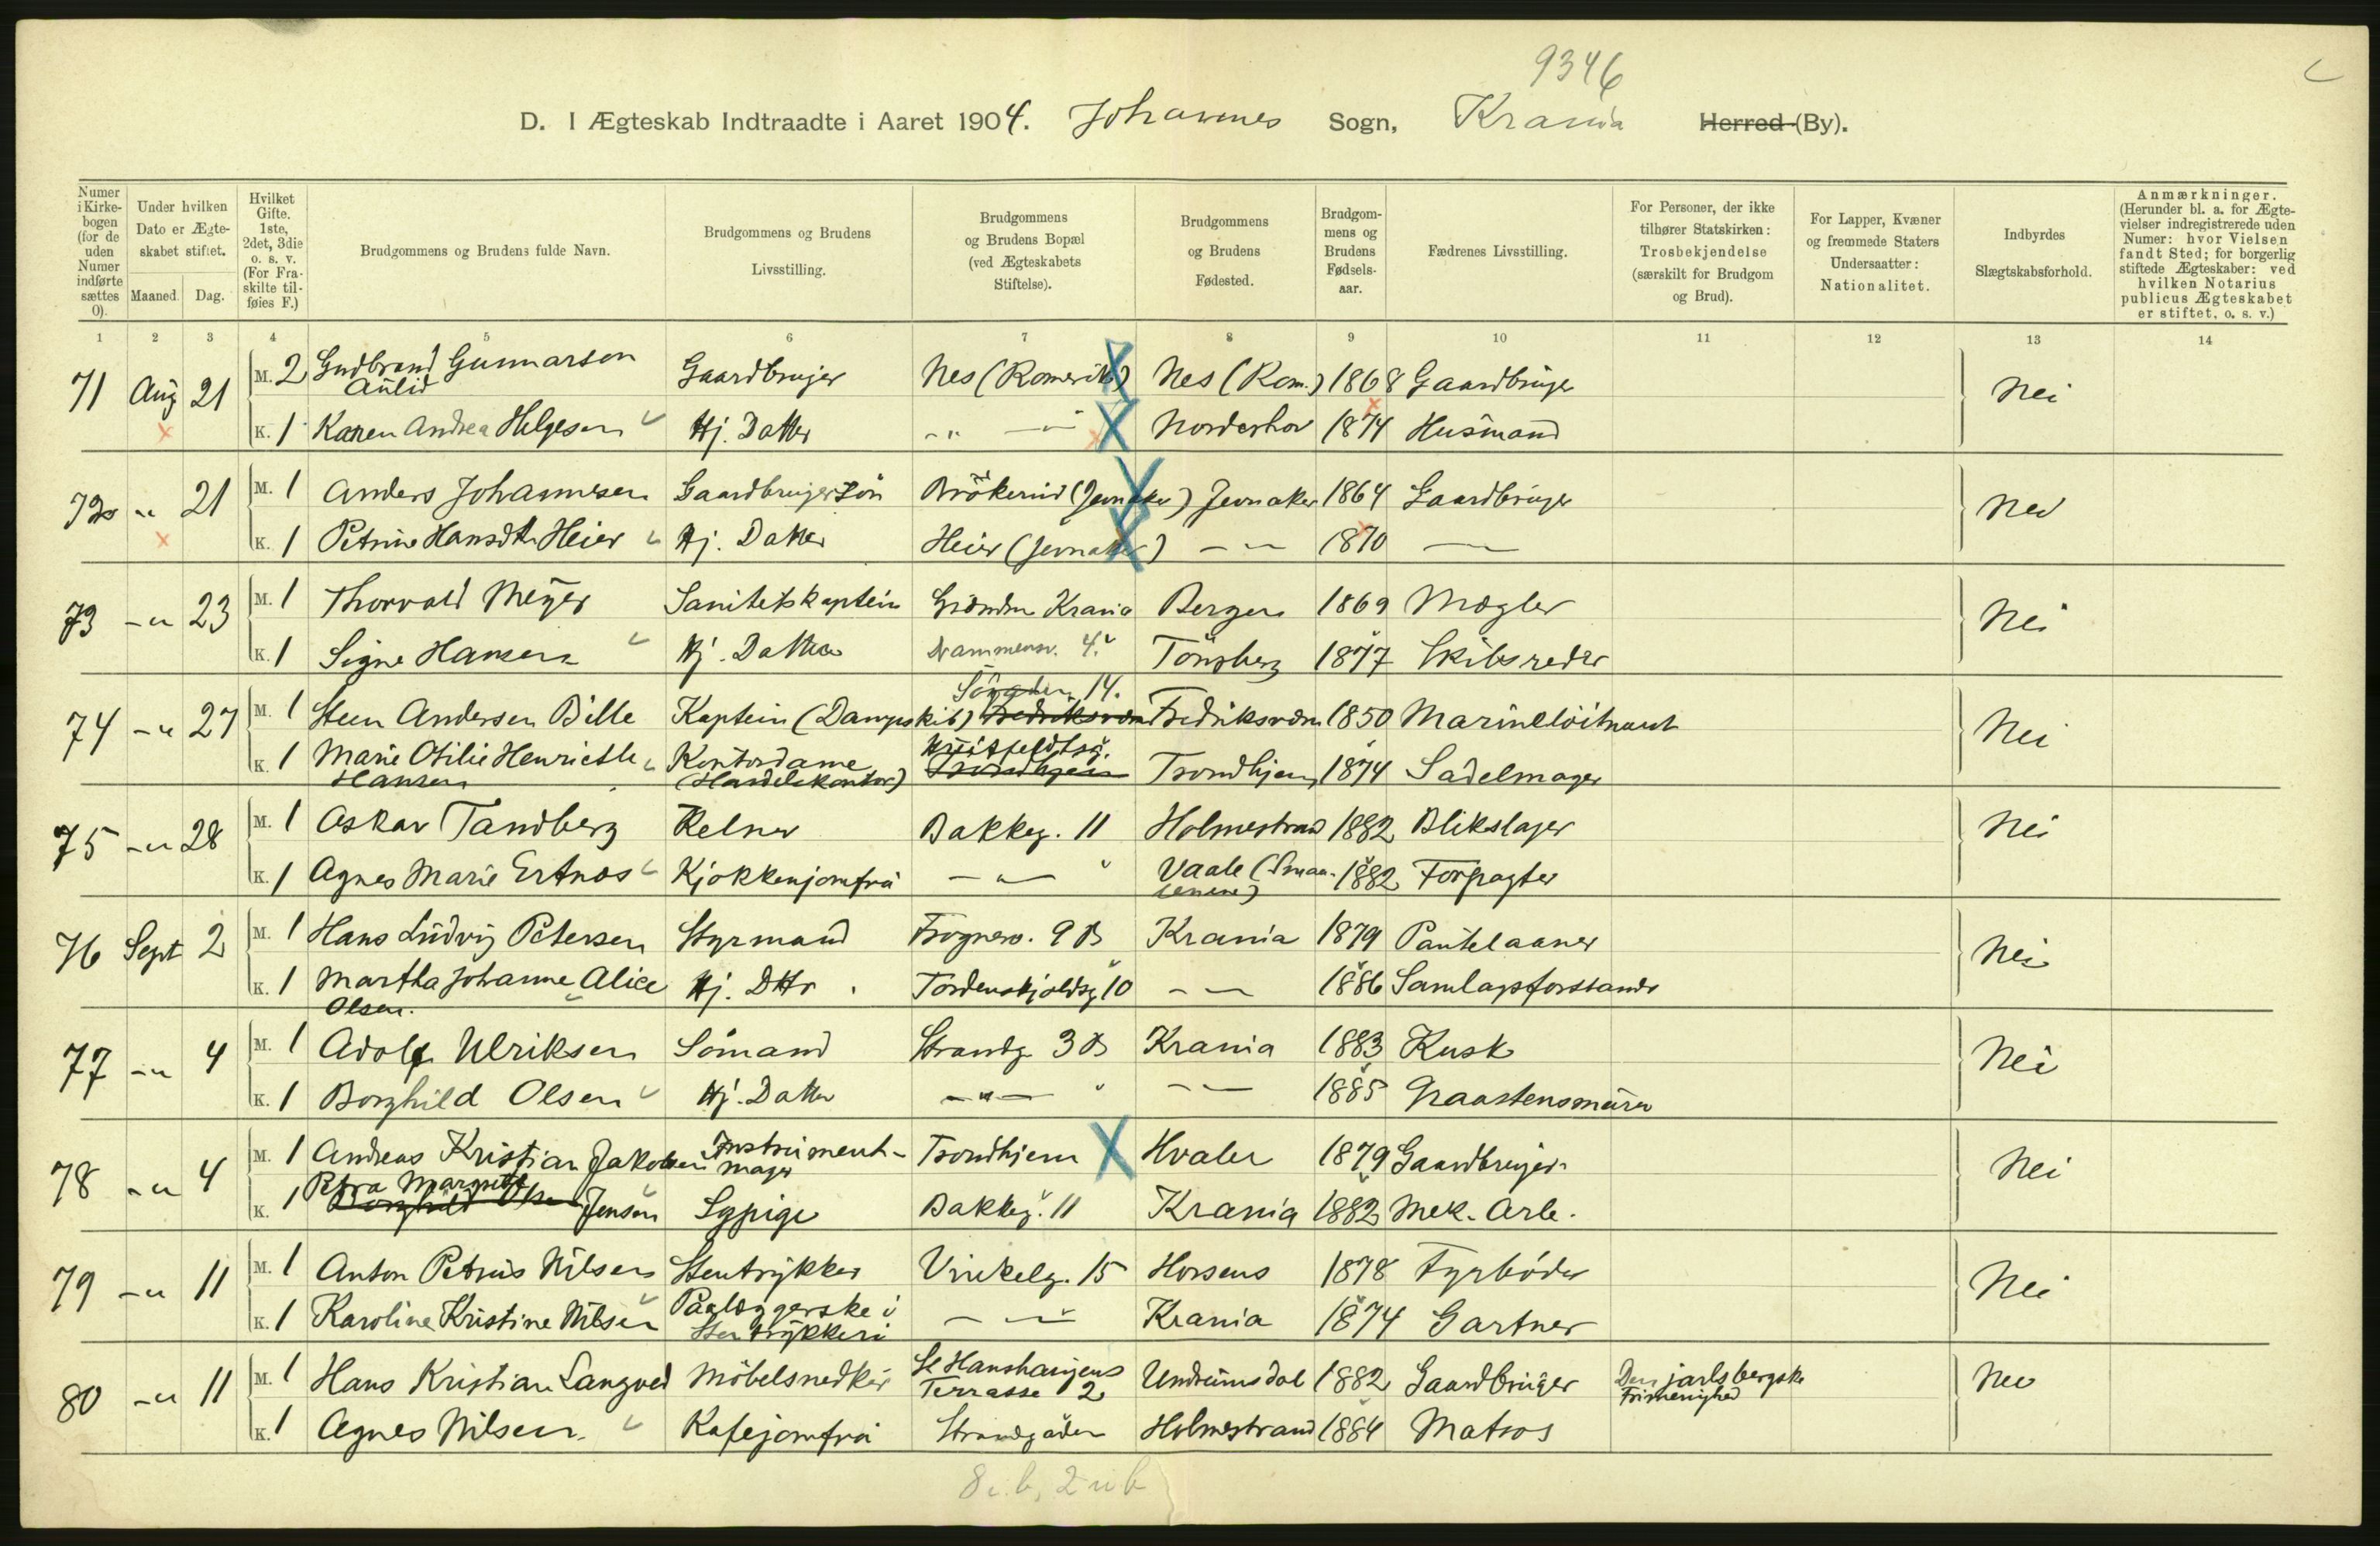 9346
D. I Ægteskab Indtraadte i Aaret 1904. Johannes Sogn, Krania Herred (By).
Numer i Kirkebogen (for de uden Numer indførte sættes 0).
Under hvilken Dato er Ægteskabet stiftet.
Maaned. Dag.
Hvilket Gifte. 1ste, 2det, 3die o. s. v. (For Fraskilte tilføies F.)
Brudgommens og Brudens fulde Navn.
Brudgommens og Brudens Livsstilling.
Brudgommens og Brudens Bopæl (ved Ægteskabets Stiftelse).
Brudgommens og Brudens Fødested.
Brudgommens og Brudens Fødselsaar.
Fædrenes Livsstilling.
For Personer, der ikke tilhører Statskirken: Trosbekjendelse (særskilt for Brudgom og Brud).
For Lapper, Kvæner og fremmede Staters Undersaatter: Nationalitet.
Indbyrdes Slægtskabsforhold.
Anmærkninger. (Herunder bl. a. for Ægtevielser indregistrerede uden Numer: hvor Vielsen fandt Sted; for borgerlig stiftede Ægteskaber: ved hvilken Notarius publicus Ægteskabet er stiftet, o. s. v.)
1 2 3 4 5 6 7 8 9 10 11 12 13 14
71 Aug 21 M. 2 Gudbrand Gunnarsen Aulid Gaardbruger Nes (Romerike) Nes (Rom.) 1868 Gaardbruger Nei
K. 1 Karen Andrea Helgesen Hj. Datter -"- -"- Norderhov 1874 Husmand
72 -"- 21 M. 1 Anders Johannesen Gaardbrugersön Brökerud (Jevnaker) Jevnaker 1864 Gaardbruger Nei
K. 1 Petrine Hansdtr Heier Hj. Datter Heier (Jevnaker) -"- 1870 -"-
73 -"- 23 M. 1 Thorvald Meyer Sanitetskaptein Krania Bergen 1869 Mægler Nei
K. 1 Signe Hansen Hj. Datter Drammensv. 4 Tönsberg 1877 Skibsreder
74 -"- 27 M. 1 Steen Andersen Bille Kaptein (Dampskib) Sögaden 14. Fredriksværn Fredriksværn 1850 Marinelöitnant Nei
K. 1 Marie Otilie Henriette Hansen Kontordame (Handelskontor) Huitfeldtsg. Trondhjem Trondhjem 1874 Sadelmager
75 -"- 28 M. 1 Oskar Tandberg Kelner Bakkeg. 11 Holmestrand 1882 Blikslager Nei
K. 1 Agnes Marie Ertnæs Kjökkenjomfru -"- Vaale (Smaalenene) 1882 Forpagter
76 Sept 2 M. 1 Hans Ludvig Petersen Styrmand Frognerv. 9 B Krania 1879 Pantelaaner Nei
K. 1 Martha Johanne Alice Olsen. Hj. Dttr Tordenskjoldsg 10 -"- 1886 Samlagsforstander
77 -"- 4 M. 1 Adolf Ulriksen Sömand Strandg. 3 B Krania 1883 Kusk Nei
K. 1 Borghild Olsen Hj. Datter -"- -"- 1885 Graastensmurer
78 -"- 4 M. 1 Andreas Kristian Jakobsen Instrumentmager Trondhjem Hvaler 1879 Gaardbruger Nei
K. 1 Petra Margrete Borghild Olsen Jensen Sypige Bakkeg. 11 Krania 1882 Mek. Arb.
79 -"- 11 M. 1 Anton Petrus Nilsen Stentrykker Vinkelg. 15 Horsens 1878 Fyrböder Nei
K. 1 Karoline Kristine Nilsen Paalæggerske i Stentrykkeri -"- Krania 1874 Gartner
80 -"- 11 M. 1 Hans Kristian Langved Möbelsnedker St Hanshaugens Terrasse 2 Undrumsdal 1882 Gaardbruger Den jarlsbergske Frimenighed Nei
K. 1 Agnes Nilsen. Kafejomfru Strandgaden Holmestrand 1884 Matros
8 i. b, 2 u b